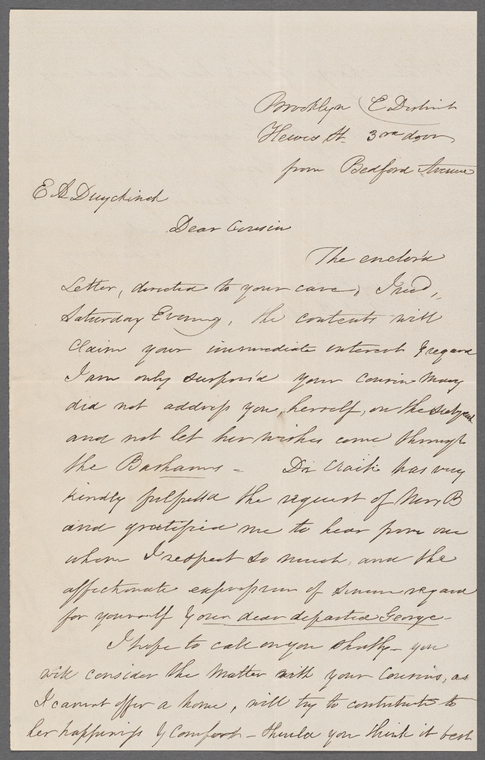 Brooklyn E District
Hewes St. 3rd door
from Bedford Avenue
E A Duyckinck
Dear Cousin
The enclos'd
Letter, directed to your care, I rec'd,
Saturday Evening, the contents will
Claim your immediate interest & regard
I am only surpris'd your cousin Mary
did not address you, herself, on the subject
and not let her wishes come through
the Bashams – Dr. has very
kindly fulfill'd the request of Mrs B
and gratified me to hear from one
whom I respect so much, and the
affectionate expression of sincere regard
for yourself & your dear departed George –
I hope to call on you shortly – you
will consider the matter with your Cousins, as
I cannot offer a home, will try to contribute to
her happiness & Comfort – should you think it best